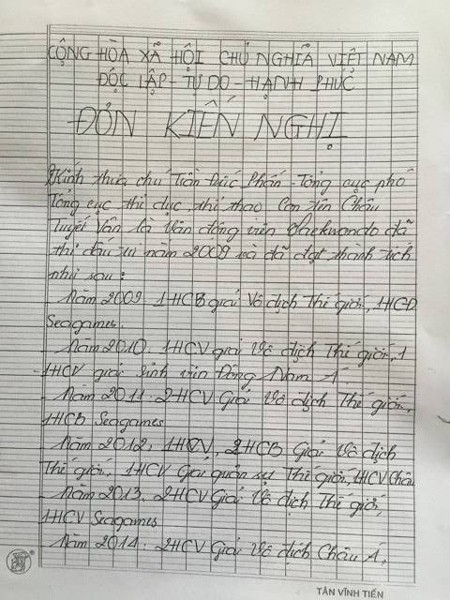 CỘNG HÒA XÃ HỘI CHỦ NGHĨA VIỆT NAM
ĐỘC LẬP - TỰ DO - HẠNH PHÚC
ĐƠN KIẾN NGHỊ
Kính thưa chú Trần Đức Phấn - Tổng cục phó
Tổng cục thể dục thể thao. Con tên Châu
Tuyết Vân là Vận động viên Taekwondo đã
thi đấu từ năm 2009 và đã đạt thành tích
như sau:
- Năm 2009. 1HCB giải Vô địch Thế giới, 1HCĐ
Seagames.
- Năm 2010. 1HCV giải Vô địch Thế giới, 1
HCV giải Sinh viên Đông Nam Á.
- Năm 2011. 2HCV Giải Vô địch Thế giới,
1HCB Seagames
- Năm 2012, 1HCV, 2HCB Giải Vô địch
Thế giới, 1HCV Giải quân sự Thế giới, 1HCV Châu
- Năm 2013. 2HCV Giải Vô địch Thế giới,
1HCV Seagames
- Năm 2014. 2HCV Giải Vô địch Châu Á,
TÂN VĨNH TIẾN